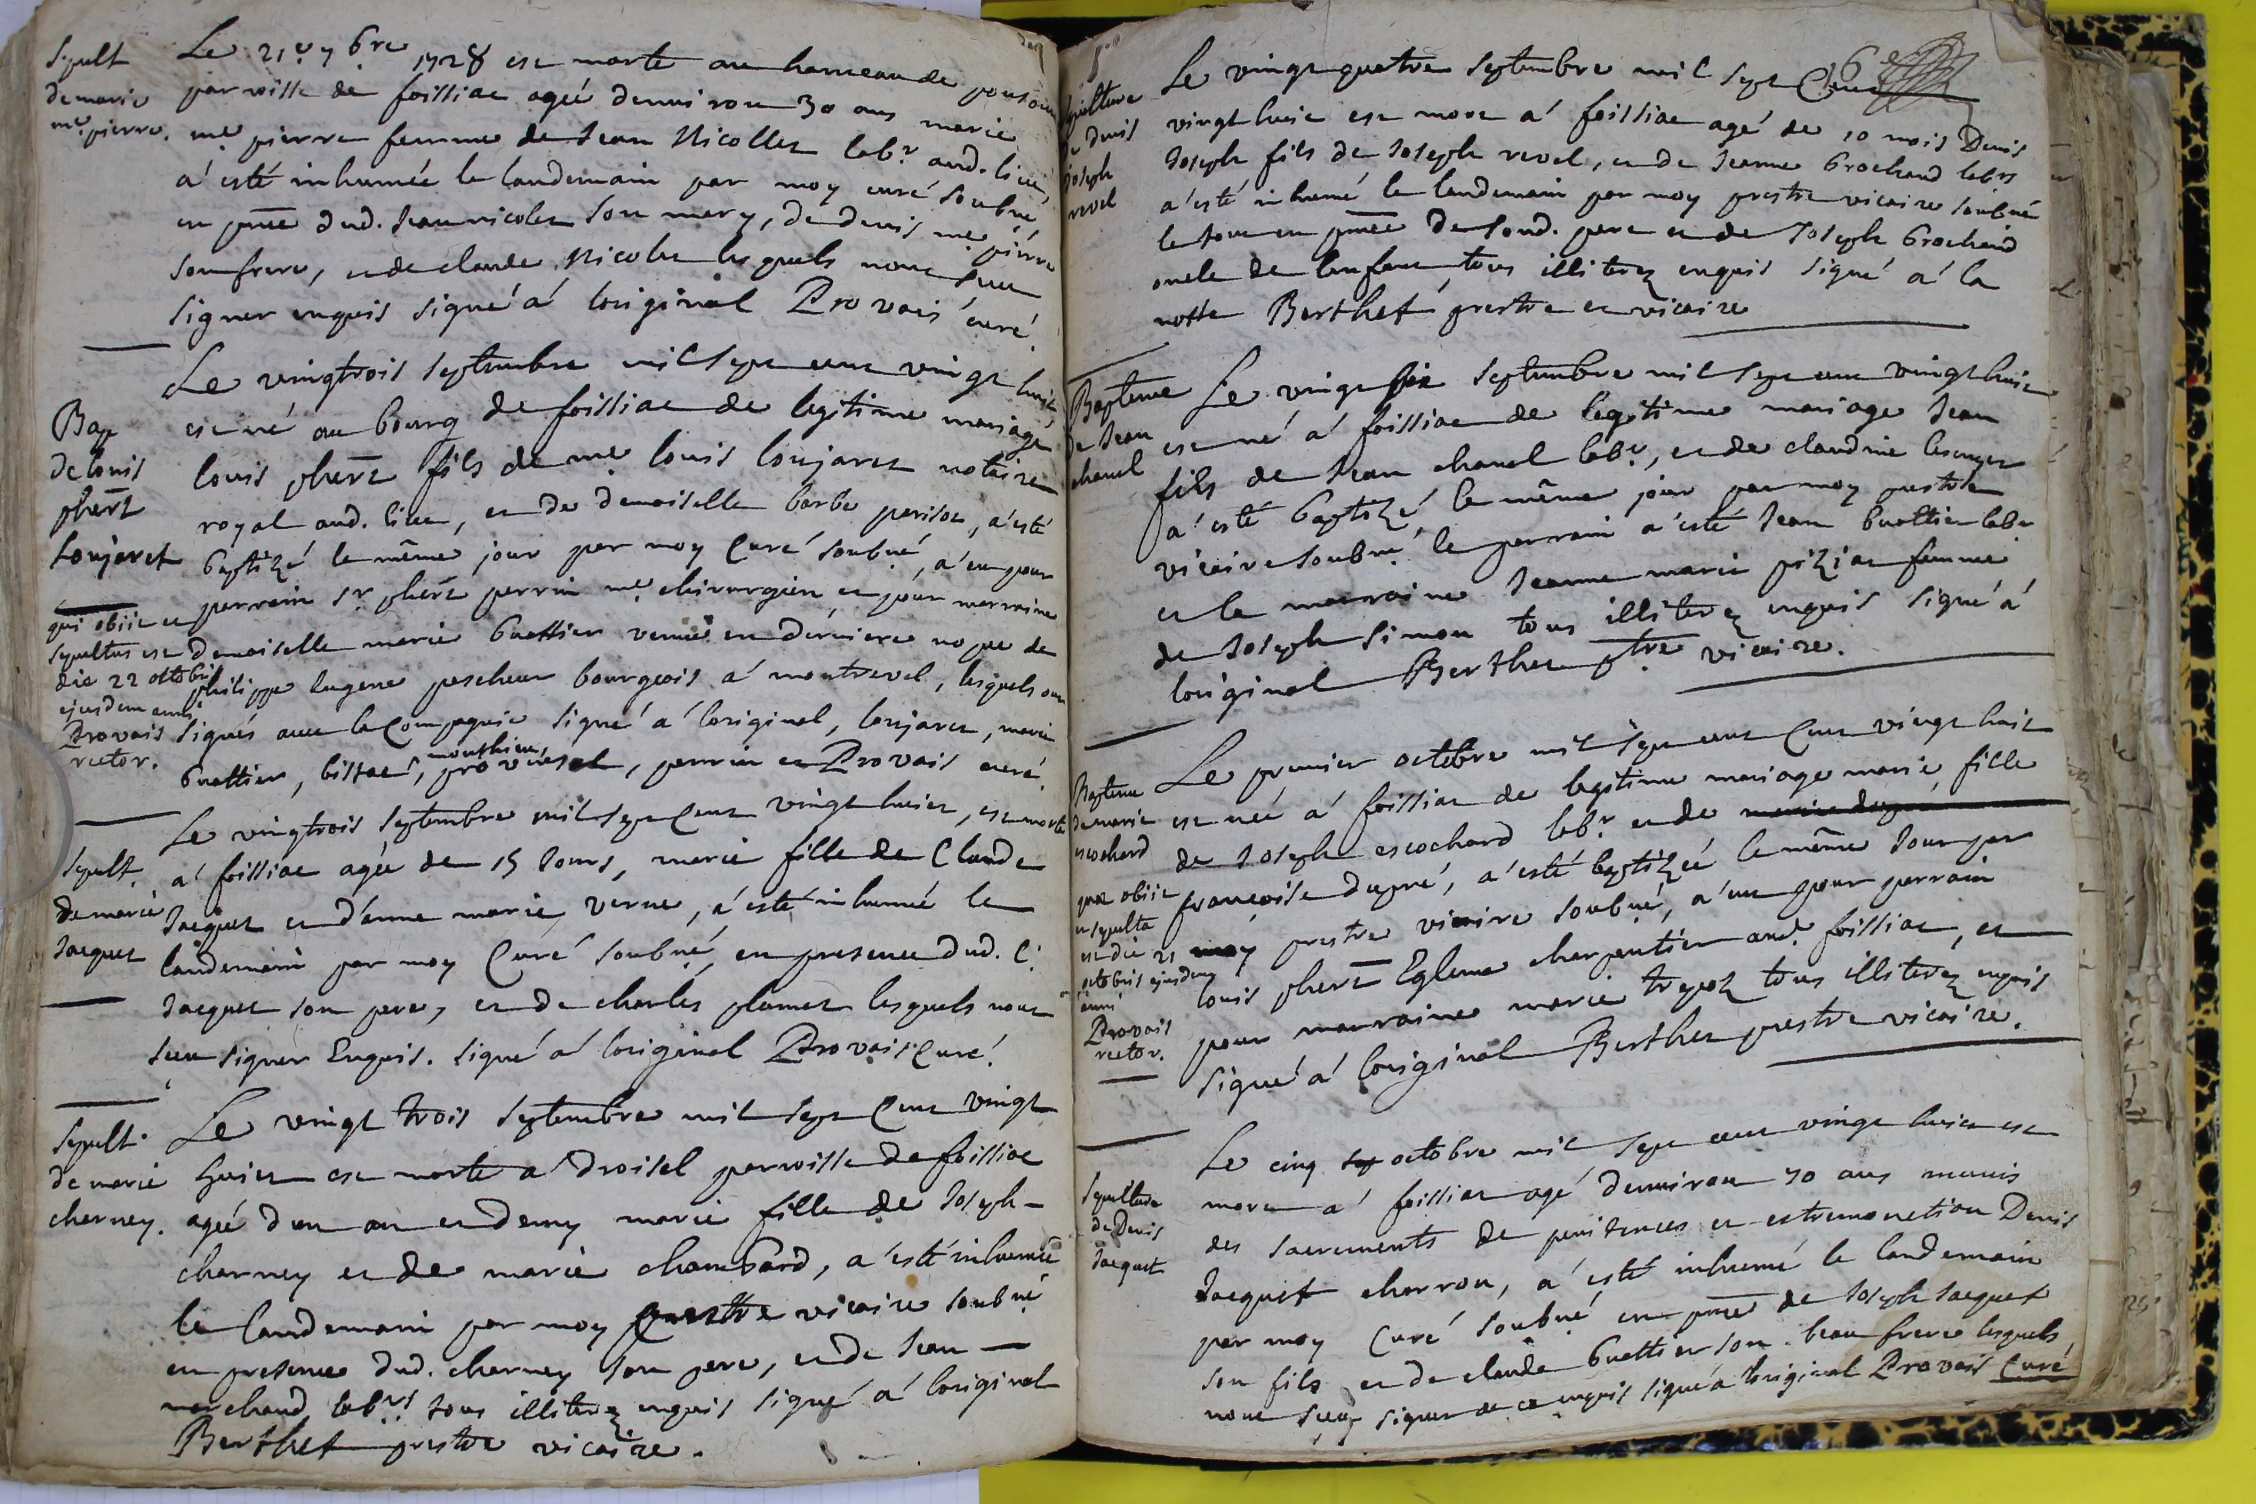 Sepult
de marie
me. pierre.
Le 21e 7bre 1728 est morte au hameau de
parroisse de foissiac ageé denviron 30 ans marie
me pierre femme de Jean Nicollet labr. aud. lieu,
a' esté inhumée le landemain par moy curé soubné
en pnce dud. Jean nicolet son mary, de denis me pierre
son frere, et de claude Nicolet lesquels nont sceu
signer enquis signé a' loriginal Provais curé
Bap
de louis
phert
Lonjaret
qui obiit et
sepultus est
die 22 octobris
ejusdem anni
Provais
rector.
Le vingtrois septembre mil sept cent vingt huit
est né au bourg de foissiac de legitime mariage
louis phert fils de me louis lonjaret notaire
royal aud. lieu, et de demoiselle barbe perisot, a'esté
baptizé le même jour par moy Curé soubné, a'eu pour
perrain sr. phert perrin me chirurgien et pour marraine
demoiselle marie buattier venue en derniere nopce de
philippe Eugene pescheur bourgeois a' montrevel, lesquels ont
signés avec la Compagnie signé a' loriginal, lonjaret, marie
buattier, bissac, monthieu, provensal, perrin et Provais curé
Sepult.
de marie
Jacquet
Le vingtrois septembre mil sept Cent vingt huict, est morte
a' foissiac agée de 15 Jours, marie fille de Claude
Jacquet et d'anne marie verne, a'esté inhumé le
landemain par moy Curé soubné, en presence dud. C.
Jacquet son pere, et de charles plumet lesquels nont
sceu signer Enquis. signé a' loriginal Provais Curé.
Sepult.
de marie
charney.
Le vingt trois septembre mil sept Cent vingt
huict est morte a' droisel parroisse de foissiac
ageé dun an et demy marie fille de Joseph
charney et de marie chambard, a'esté inhumée
le landemain par moy prestre vicaire soubné
en presence dud. charney son pere, et de Jean
marchand labrs. tous illiterez enquis signé a' loriginal
Berthet prestre vicaire.
Sepulture
de denis
Joseph
revel
Le vingt quatre septembre mil sept Cent
vingt huit est mort a' foissiac agé de 10 mois Denis
Joseph fils de Joseph revel, et de Jeanne brochand labrs
a'esté inhumé le landemain par moy prestre vicaire soubné
le tout en pnce de soud. pere et de Joseph brochand
oncle de lenfant tous illiterez enquis signé a' la
notte Berthet prestre et vicaire
Bapteme
de Jean
chanel
Le vingt six septembre mil sept cent vingt huit
est né a' foissiac de legitime mariage Jean
fils de Jean chanel labr., et de claudine
a'esté baptizé le même jour par moy prestre
vicaire soubné le perrain a'esté Jean buattier labr
et la marraine Jeanne marie piziac femme
de Joseph simon tous illiterez enquis signé a'
loriginal Berthet ptre vicaire.
Bapteme
de marie
escochard
quae obiit
et sepulta
est die 21
octobris ejusdem
anni
Provais
rector.
Le premier octobre mil sept cent Cent vingt huit
est neé a' foissiac de legitime mariage marie, fille
de Joseph escochard labr. et de marie dupré
francoise dupré, a'esté baptizeé le même Jour par
moy prestre vicaire soubné, a'eu pour perrain
louis phert Egleme charpentier aud. foissiac, et
pour marraine marie tous illiterez enquis
signé a' loriginal Berthet prestre vicaire.
Sepulture
de Denis
Jacquet
Le cinq octobre mil sept cent vingt huict est
mort a' foissiac agé denviron 70 ans munis
des sacrements de penitences et extremonction Denis
Jacquet charron, a'esté inhumé le landemain
par moy Curé soubné en pnce de Joseph Jacquet
son fils et de claude buattier son beau frere lesquels
nont sceu signer de ce enquis signé a' loriginal Provais Curé